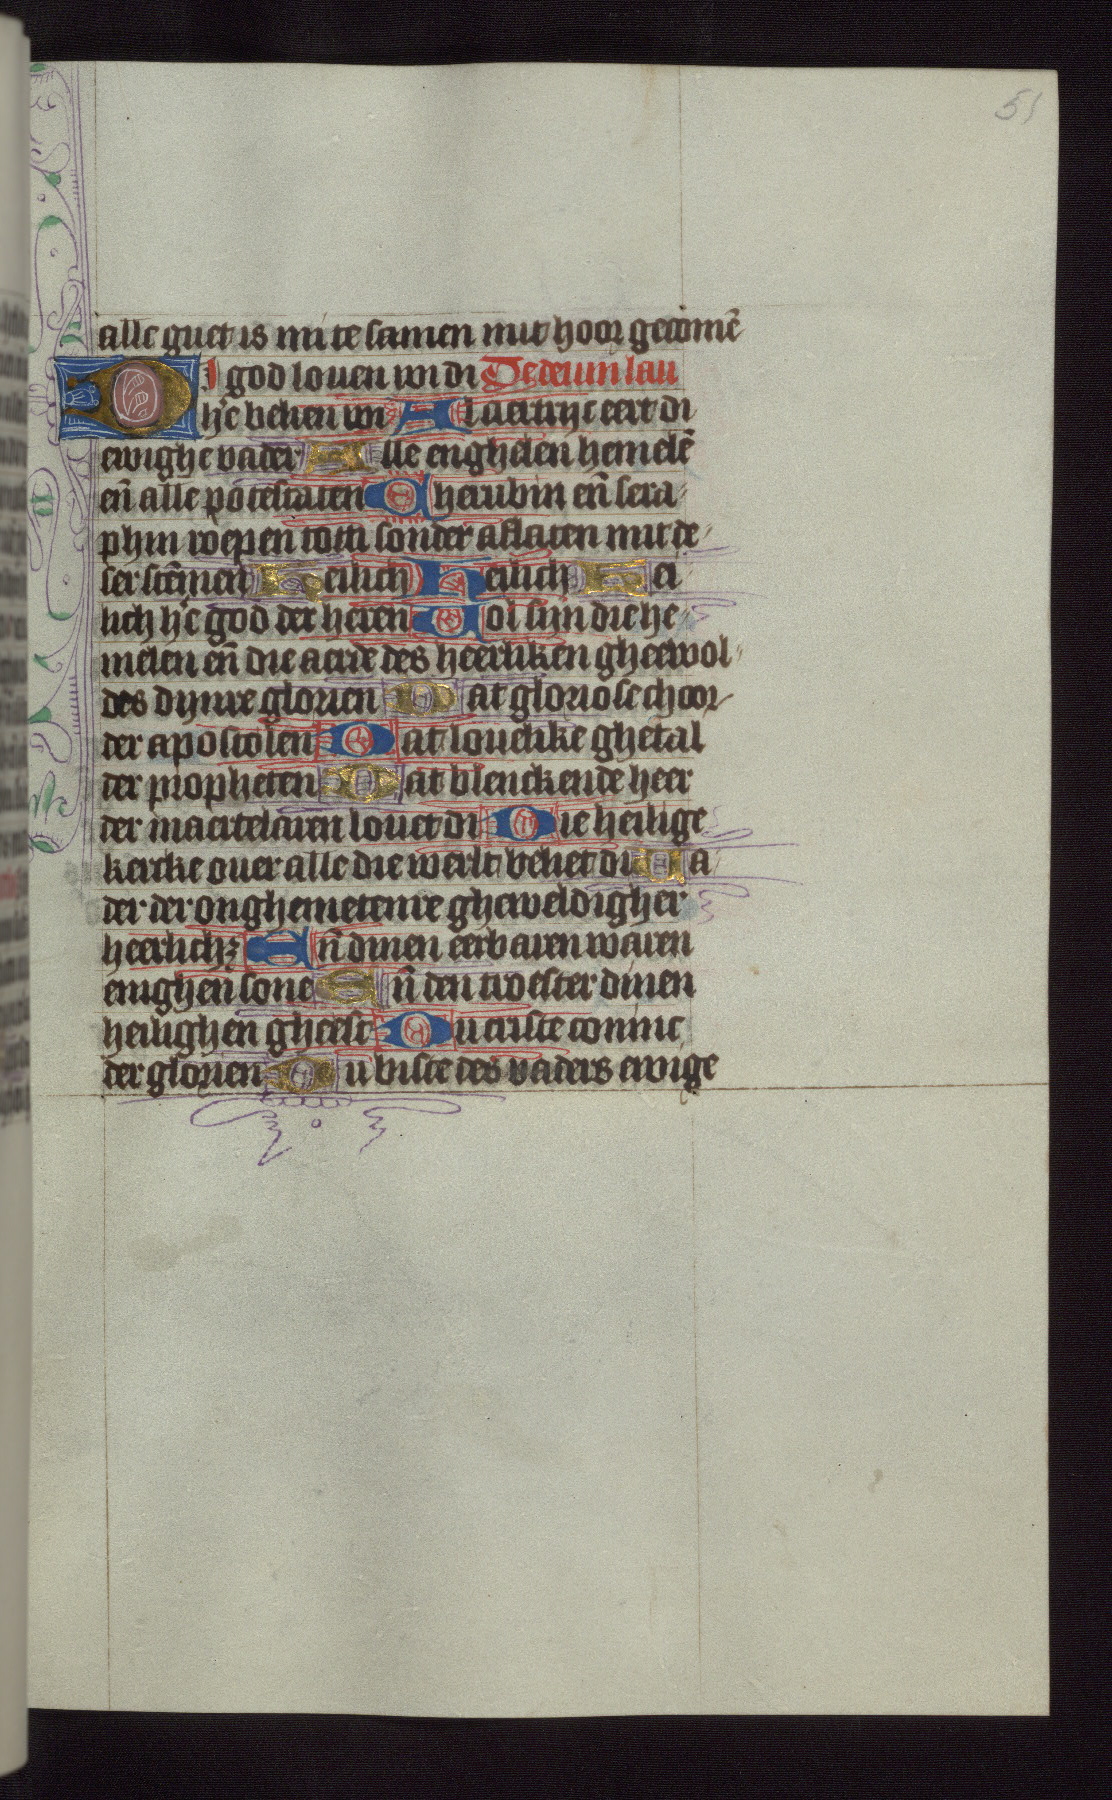 51
alle guet is mi te samen mit hoor gecomē
DI god louen wi di Te deum lau
hēe belien wi Al aertrijc eert di
ewighe vader Alle enghelen hemelē
eñ alle potestaten Cherubin eñ sera
phin roepen toti sonder aflaten mit de
ser stēmen Heilich heilich hei
lich hēe god der heren Vol sijn die he
melen eñ die aerde des heerliken ghewol
des dijnre glorien Dat gloriose choor
der apostolen Dat louelike ghetal
der propheten Dat blenckende heer
der maertelaren louet di Die heilige
kercke ouer alle die werlt beliet di Va
der der onghemetenre gheweldigher
heerlichz Eñ dinen eerbaren waren
enighen sone Eñ den troester dinen
heilighen gheest Du criste coninc
der glorien Du biste des vaders ewige